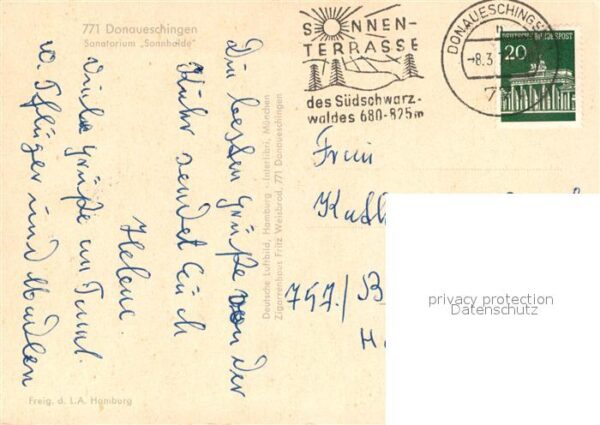 771 Donaueschingen
Sanatorium „Sonnhalde"
Die besten Grüße von der
Kuhr sendet Euch
Helene.
Viele Grüße an Fam.
W. Pflüger und
Freig. d. L.A. Hamburg
Deutsche Luftbild, Hamburg · Interlibri, München
Zigarrenhaus Fritz Weisbrod, 771 Donaueschingen
SONNEN-
TERRASSE
des Südschwarz-
waldes 680-825m
DONAUESCHINGEN
-8.3.
DEUTSCHE BUNDESPOST
20
Frau
Kath
757./B
H
privacy protection
Datenschutz